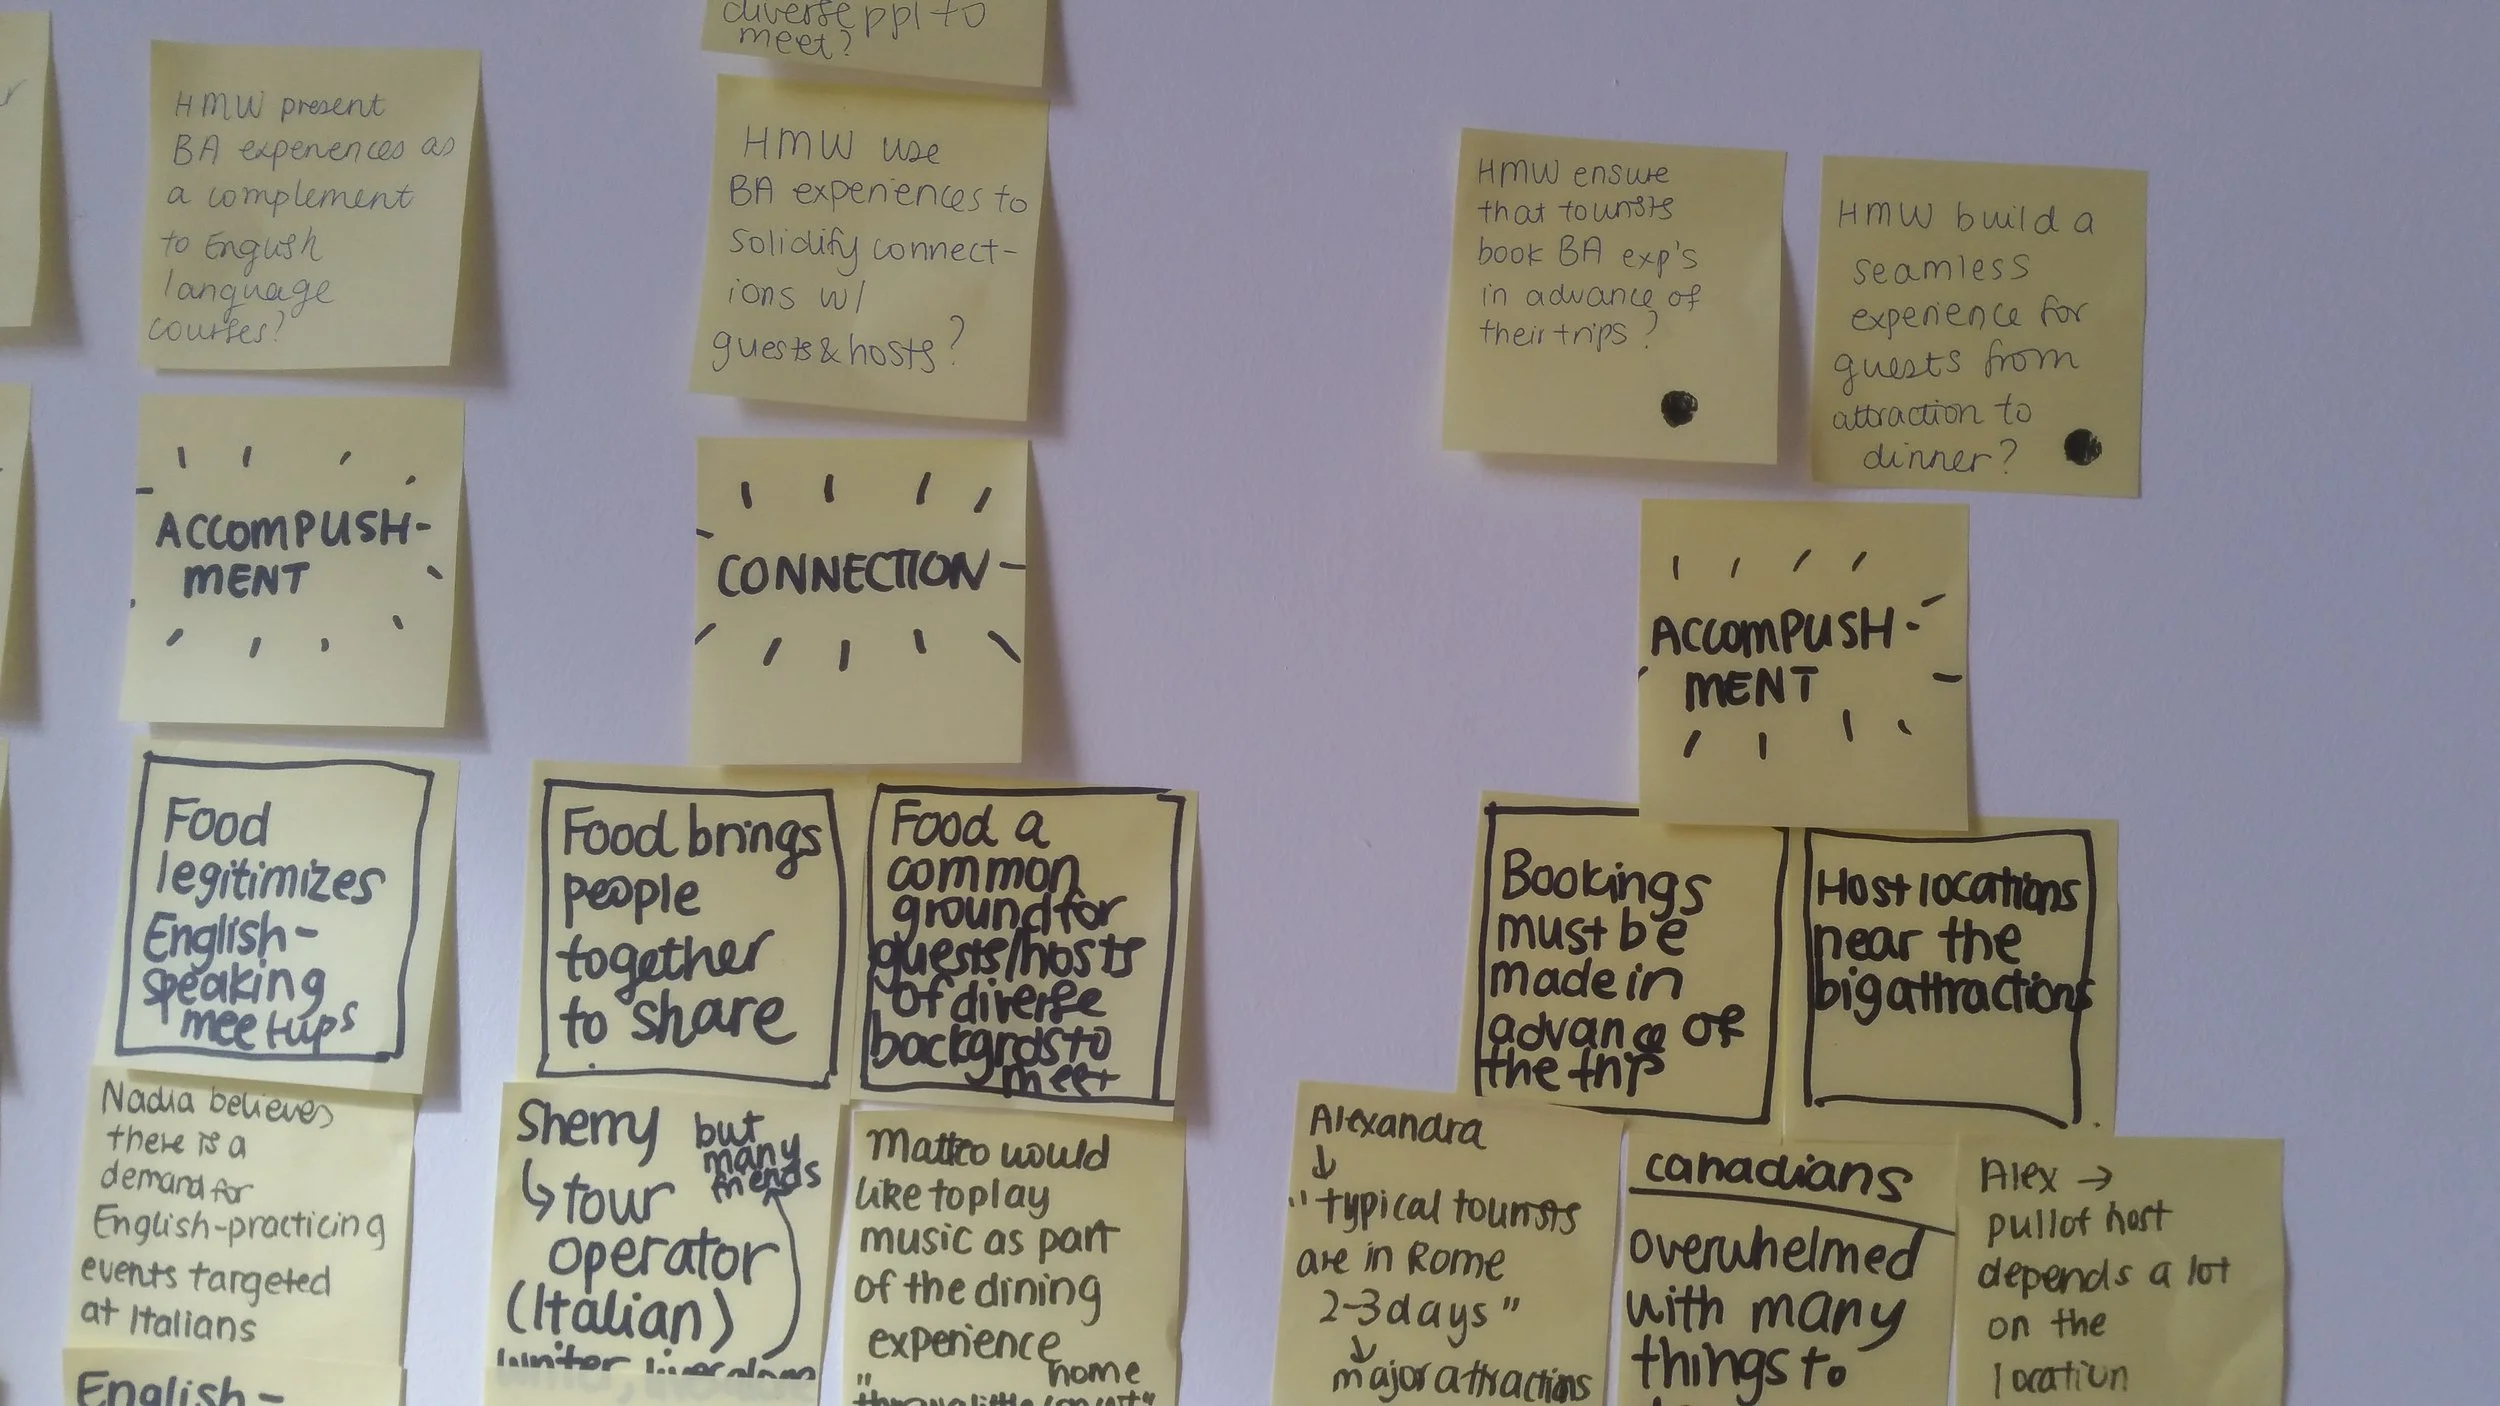 diverse ppl to
meet?
HMW present
BA experiences as
a complement
to English
language
courses?
HMW use
BA experiences to
solidify connect-
ions w/
guests & hosts?
HMW ensure
that tourists
book BA exp's
in advance of
their trips?
HMW build a
seamless
experience for
guests from
attraction to
dinner?
ACCOMPLISH-
MENT
CONNECTION
ACCOMPLISH-
MENT
Food
legitimizes
English-
speaking
meetups
Food brings
people
together
to share
Food a
common
ground for
guests/hosts
of diverse
backgrds to
meet
Bookings
must be
made in
advance of
the trip
Host locations
near the
big attractions
Nadia believes
there is a
demand for
English-practicing
events targeted
at Italians
English-
Sherry
↳ tour
operator
(Italian)
but
many
friends
writer, lives alone
Matteo would
like to play
music as part
of the dining
experience
home
"
Alexandra
↓
"typical tourists
are in Rome
2-3 days"
↓
major attractions
canadians
overwhelmed
with many
things to
Alex →
pull of host
depends a lot
on the
location